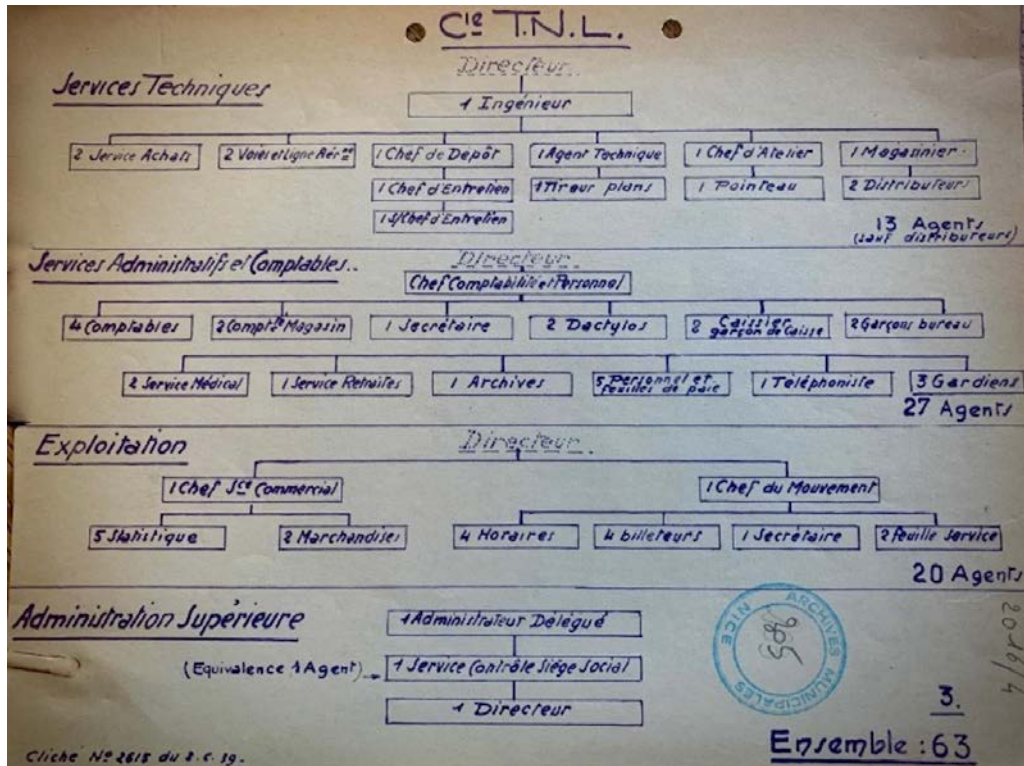 Cie T.N.L.
Directeur
Services Techniques
1 Ingénieur
2 Service Achats
2 Voies et Ligne Aérne
1 Chef de Depôt
1 Agent Technique
1 Chef d'Atelier
1 Magasinier
1 Chef d'Entretien
1 Tireur plans
1 Pointeau
2 Distributeurs
1 S/Chef d'Entretien
13 Agents
(sauf distributeurs)
Services Administratifs et Comptables..
Directeur
Chef Comptabilité et Personnel
4 Comptables
2 Compt. Magasin
1 Secrétaire
2 Dactylos
2 Caissier garçon de Caisse
2 Garçons bureau
2 Service Médical
1 Service Retraites
1 Archives
5 Personnel et feuilles de paie
1 Téléphoniste
3 Gardiens
27 Agents
Exploitation
Directeur.
1 Chef Sce Commercial
1 Chef du Mouvement
5 Statistique
2 Marchandises
4 Horaires
4 billeteurs
1 Secrétaire
2 Feuille service
20 Agents
Administration Supérieure
1 Administrateur Délégué
(Equivalence 1 Agent)
1 Service Contrôle Siège Social
1 Directeur
ARCHIVES MUNICIPALES NICE
2016/4
3.
Ensemble : 63
Cliché Nº 2615 du